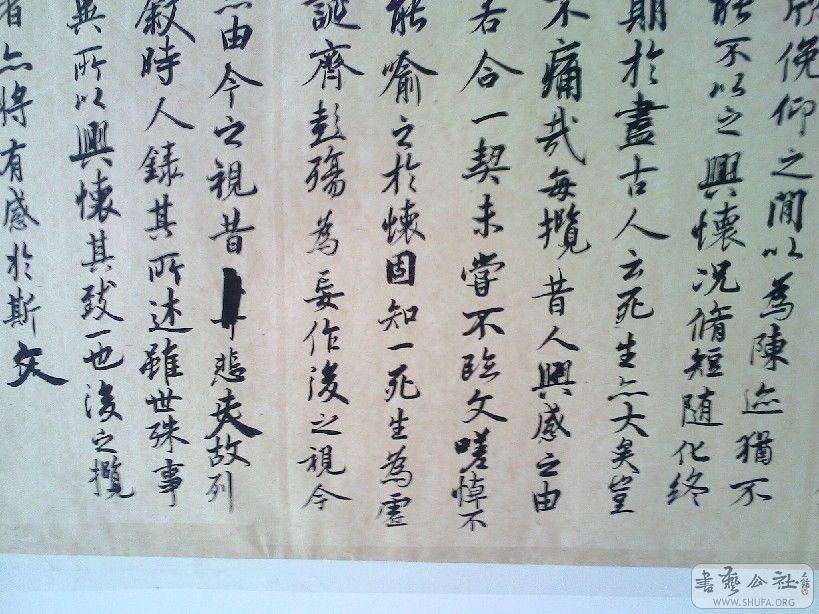 欣俛仰之閒以為陳迹猶不
能不以之興懷況脩短隨化終
期於盡古人云死生亦大矣豈
不痛哉每攬昔人興感之由
若合一契未嘗不臨文嗟悼不
能喻之於懷固知一死生為虛
誕齊彭殤為妄作後之視今
亦由今之視昔悲夫故列
敘時人錄其所述雖世殊事
異所以興懷其致一也後之攬
者亦將有感於斯文
書藝公社
WWW.SHUFA.ORG